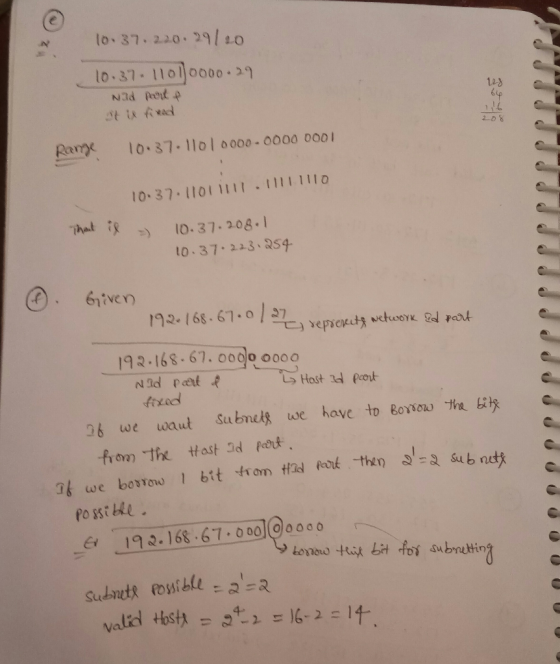 (e)
10.37.220.29/20
10.37.1101|0000.29
NId part &
It is fixed
128
64
116
208
Range 10.37.11010000-0000 0001
:
10.37.11011111.11111110
That is => 10.37.208.1
10.37.223.254
(f). Given
192.168.67.0/27 represents network Id part
192.168.67.000|00000
NId part & Host Id part
fixed
If we want subnets we have to Borrow the bits
from the Host Id part.
If we borrow 1 bit from HId part then 2¹=2 subnets
possible.
Ex 192.168.67.000|00000
borrow this bit for subnetting
subnets possible = 2¹=2
valid Hosts = 2⁴-2 = 16-2 = 14.